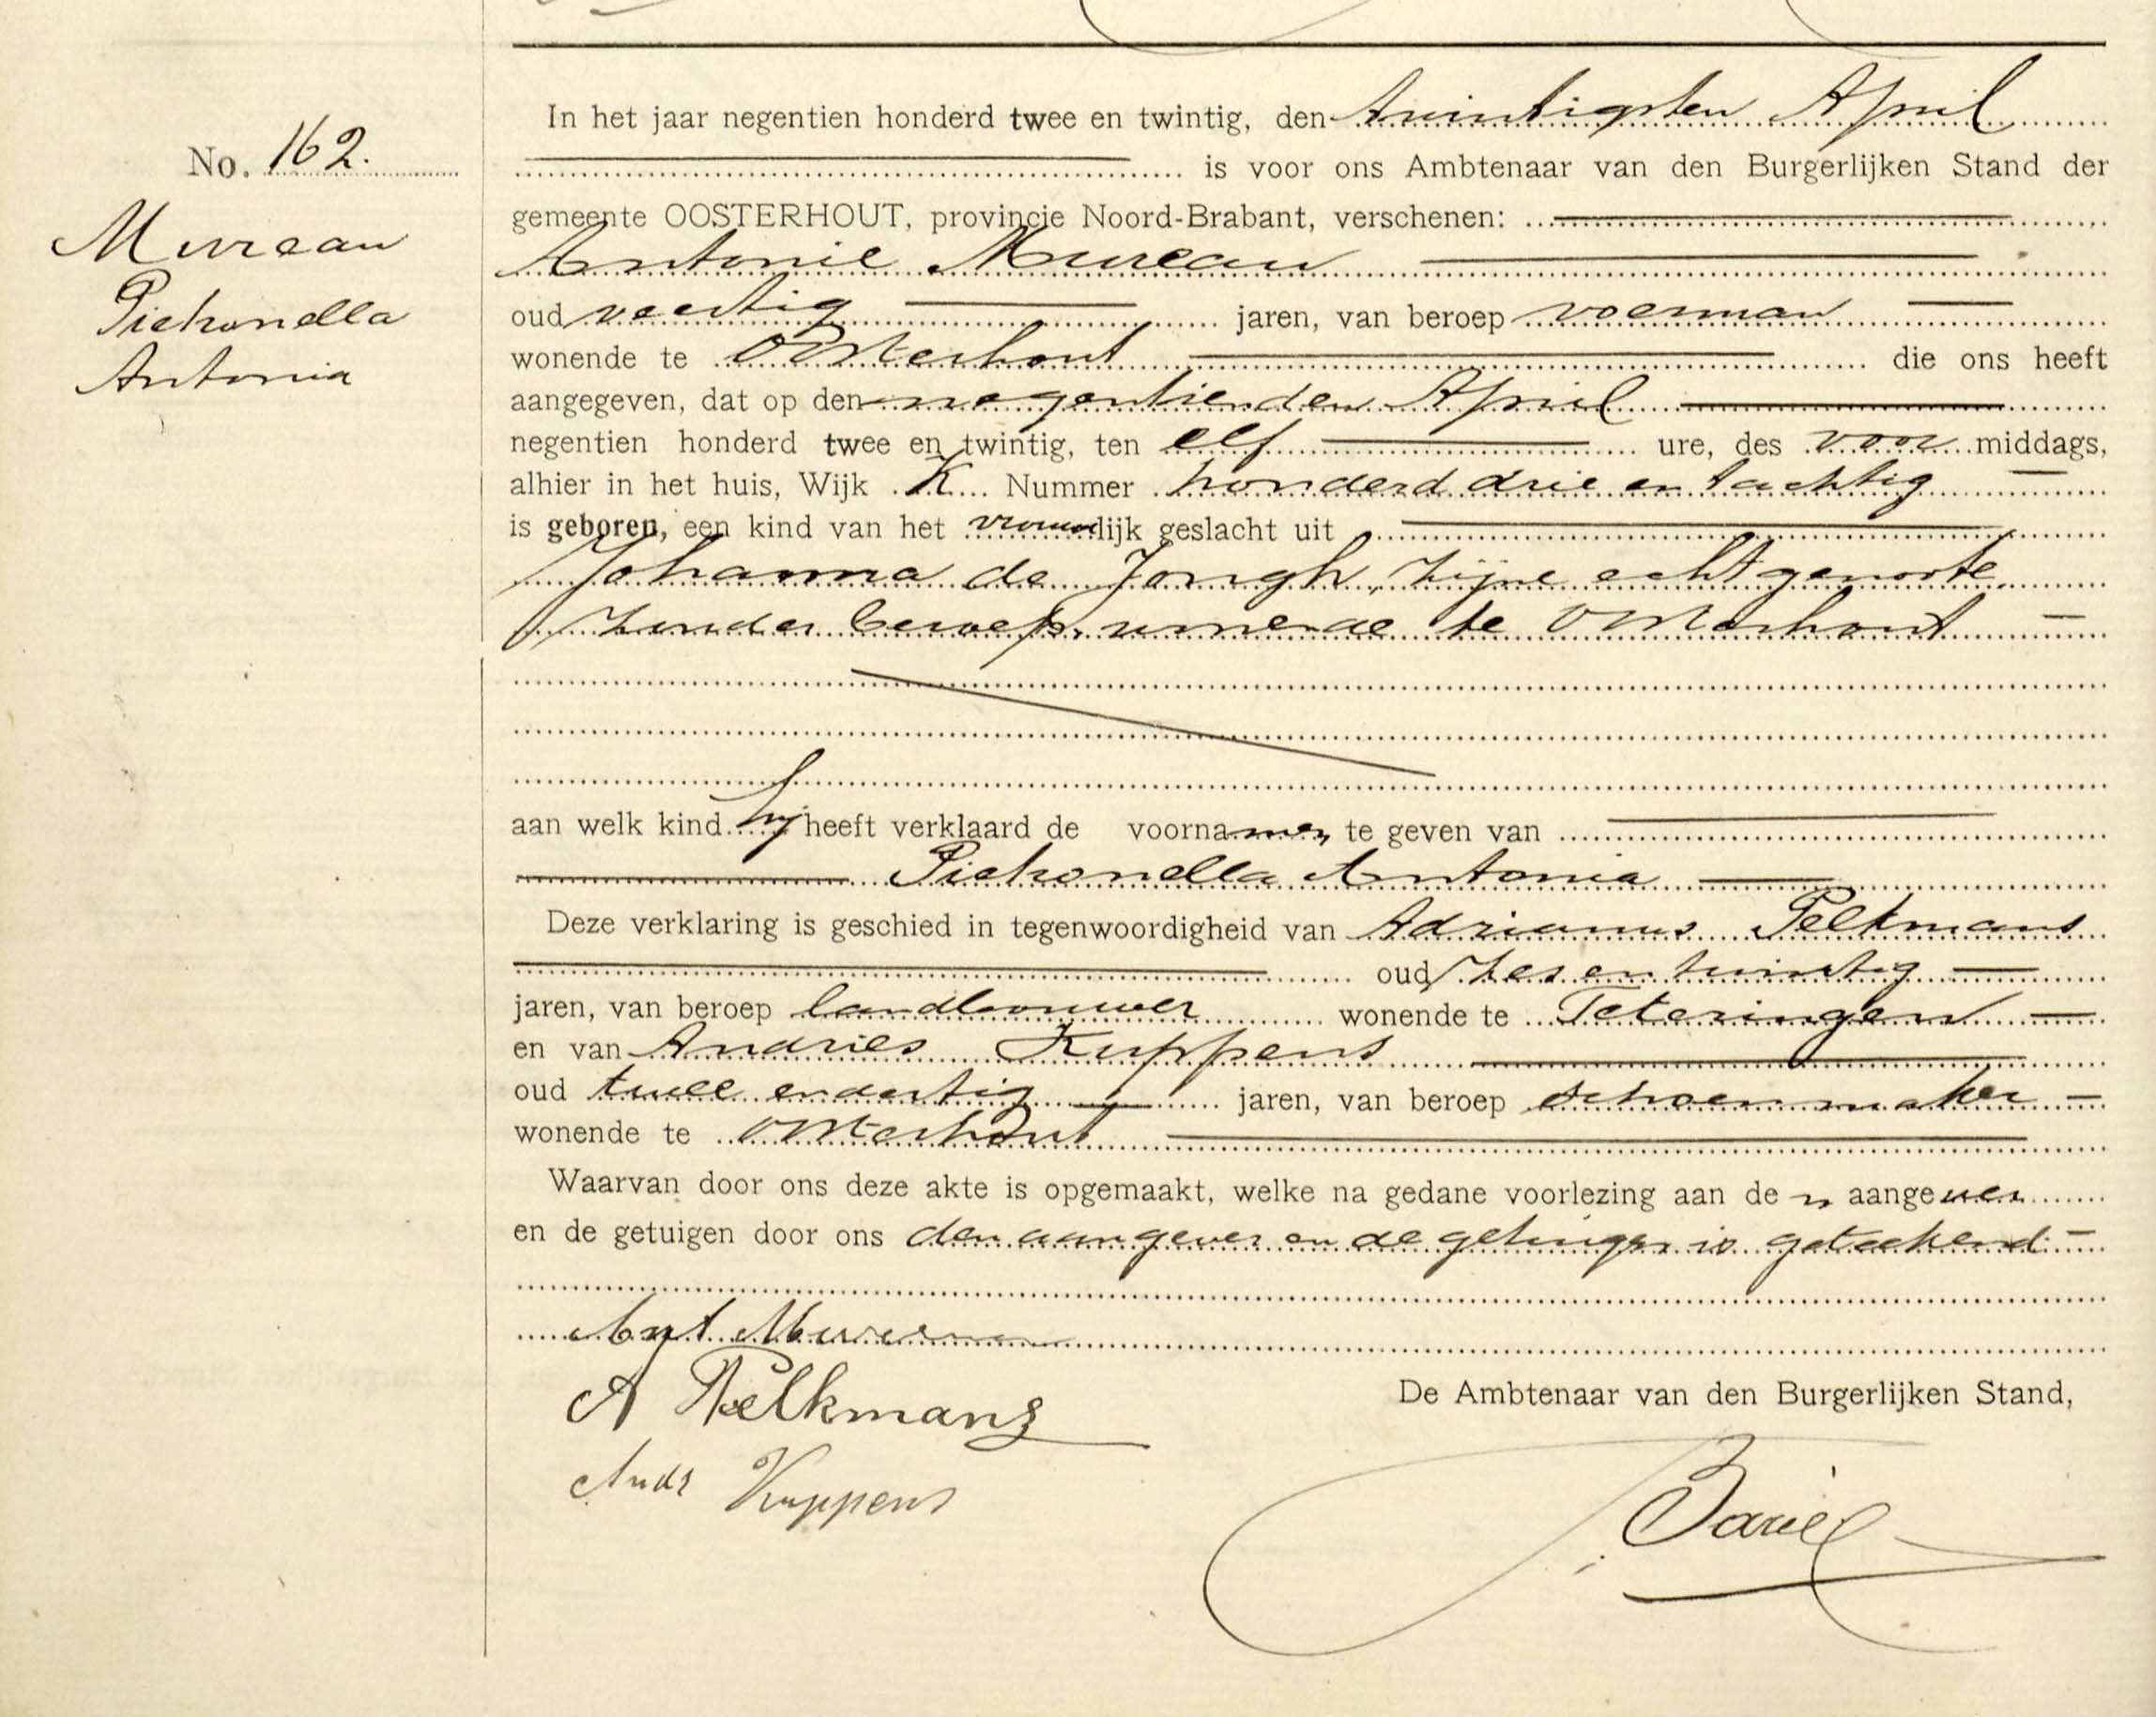 No. 162.
Mureau
Pichonella
Antonia
In het jaar negentien honderd twee en twintig, den twintigsten April
is voor ons Ambtenaar van den Burgerlijken Stand der
gemeente OOSTERHOUT, provincie Noord-Brabant, verschenen:
Antonie Mureau
oud veertig jaren, van beroep voerman
wonende te Oosterhout die ons heeft
aangegeven, dat op den negentienden April
negentien honderd twee en twintig, ten elf ure, des voor middags,
alhier in het huis, Wijk K Nummer honderd drie en tachtig
is geboren, een kind van het vrouwlijk geslacht uit
Johanna de Jongh, zijne echtgenoote
zonder beroep, wonende te Oosterhout
aan welk kind hij heeft verklaard de voornamen te geven van
Pichonella Antonia
Deze verklaring is geschied in tegenwoordigheid van Adrianus Pelkmans
oud zes en twintig
jaren, van beroep landbouwer wonende te Teteringen
en van Andries Kuppens
oud twee en dertig jaren, van beroep schoenmaker
wonende te Oosterhout
Waarvan door ons deze akte is opgemaakt, welke na gedane voorlezing aan de n aangever
en de getuigen door ons den aangever en de getuigen is geteekend
Ant. Mureau
A Pelkmans
Andr Kuppens
De Ambtenaar van den Burgerlijken Stand,